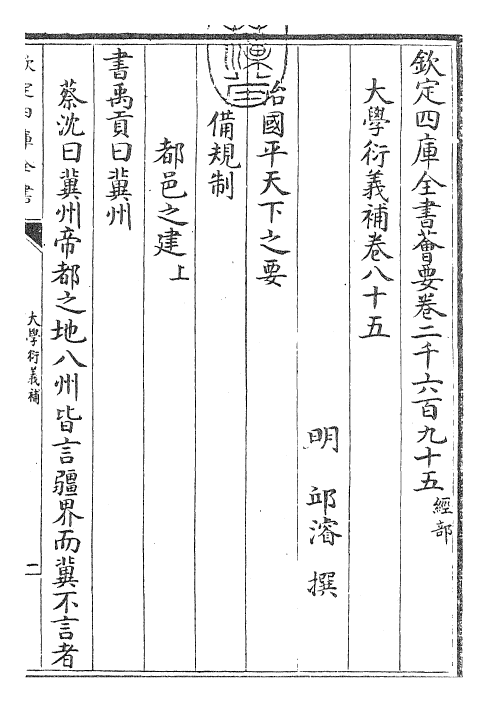 欽定四庫全書薈要卷二千六百九十五 經部
大學衍義補卷八十五
明 邱濬 撰
治國平天下之要
備規制
都邑之建上
書禹貢曰冀州
蔡沈曰冀州帝都之地八州皆言疆界而冀不言者
欽定四庫全書
大學衍義補
二